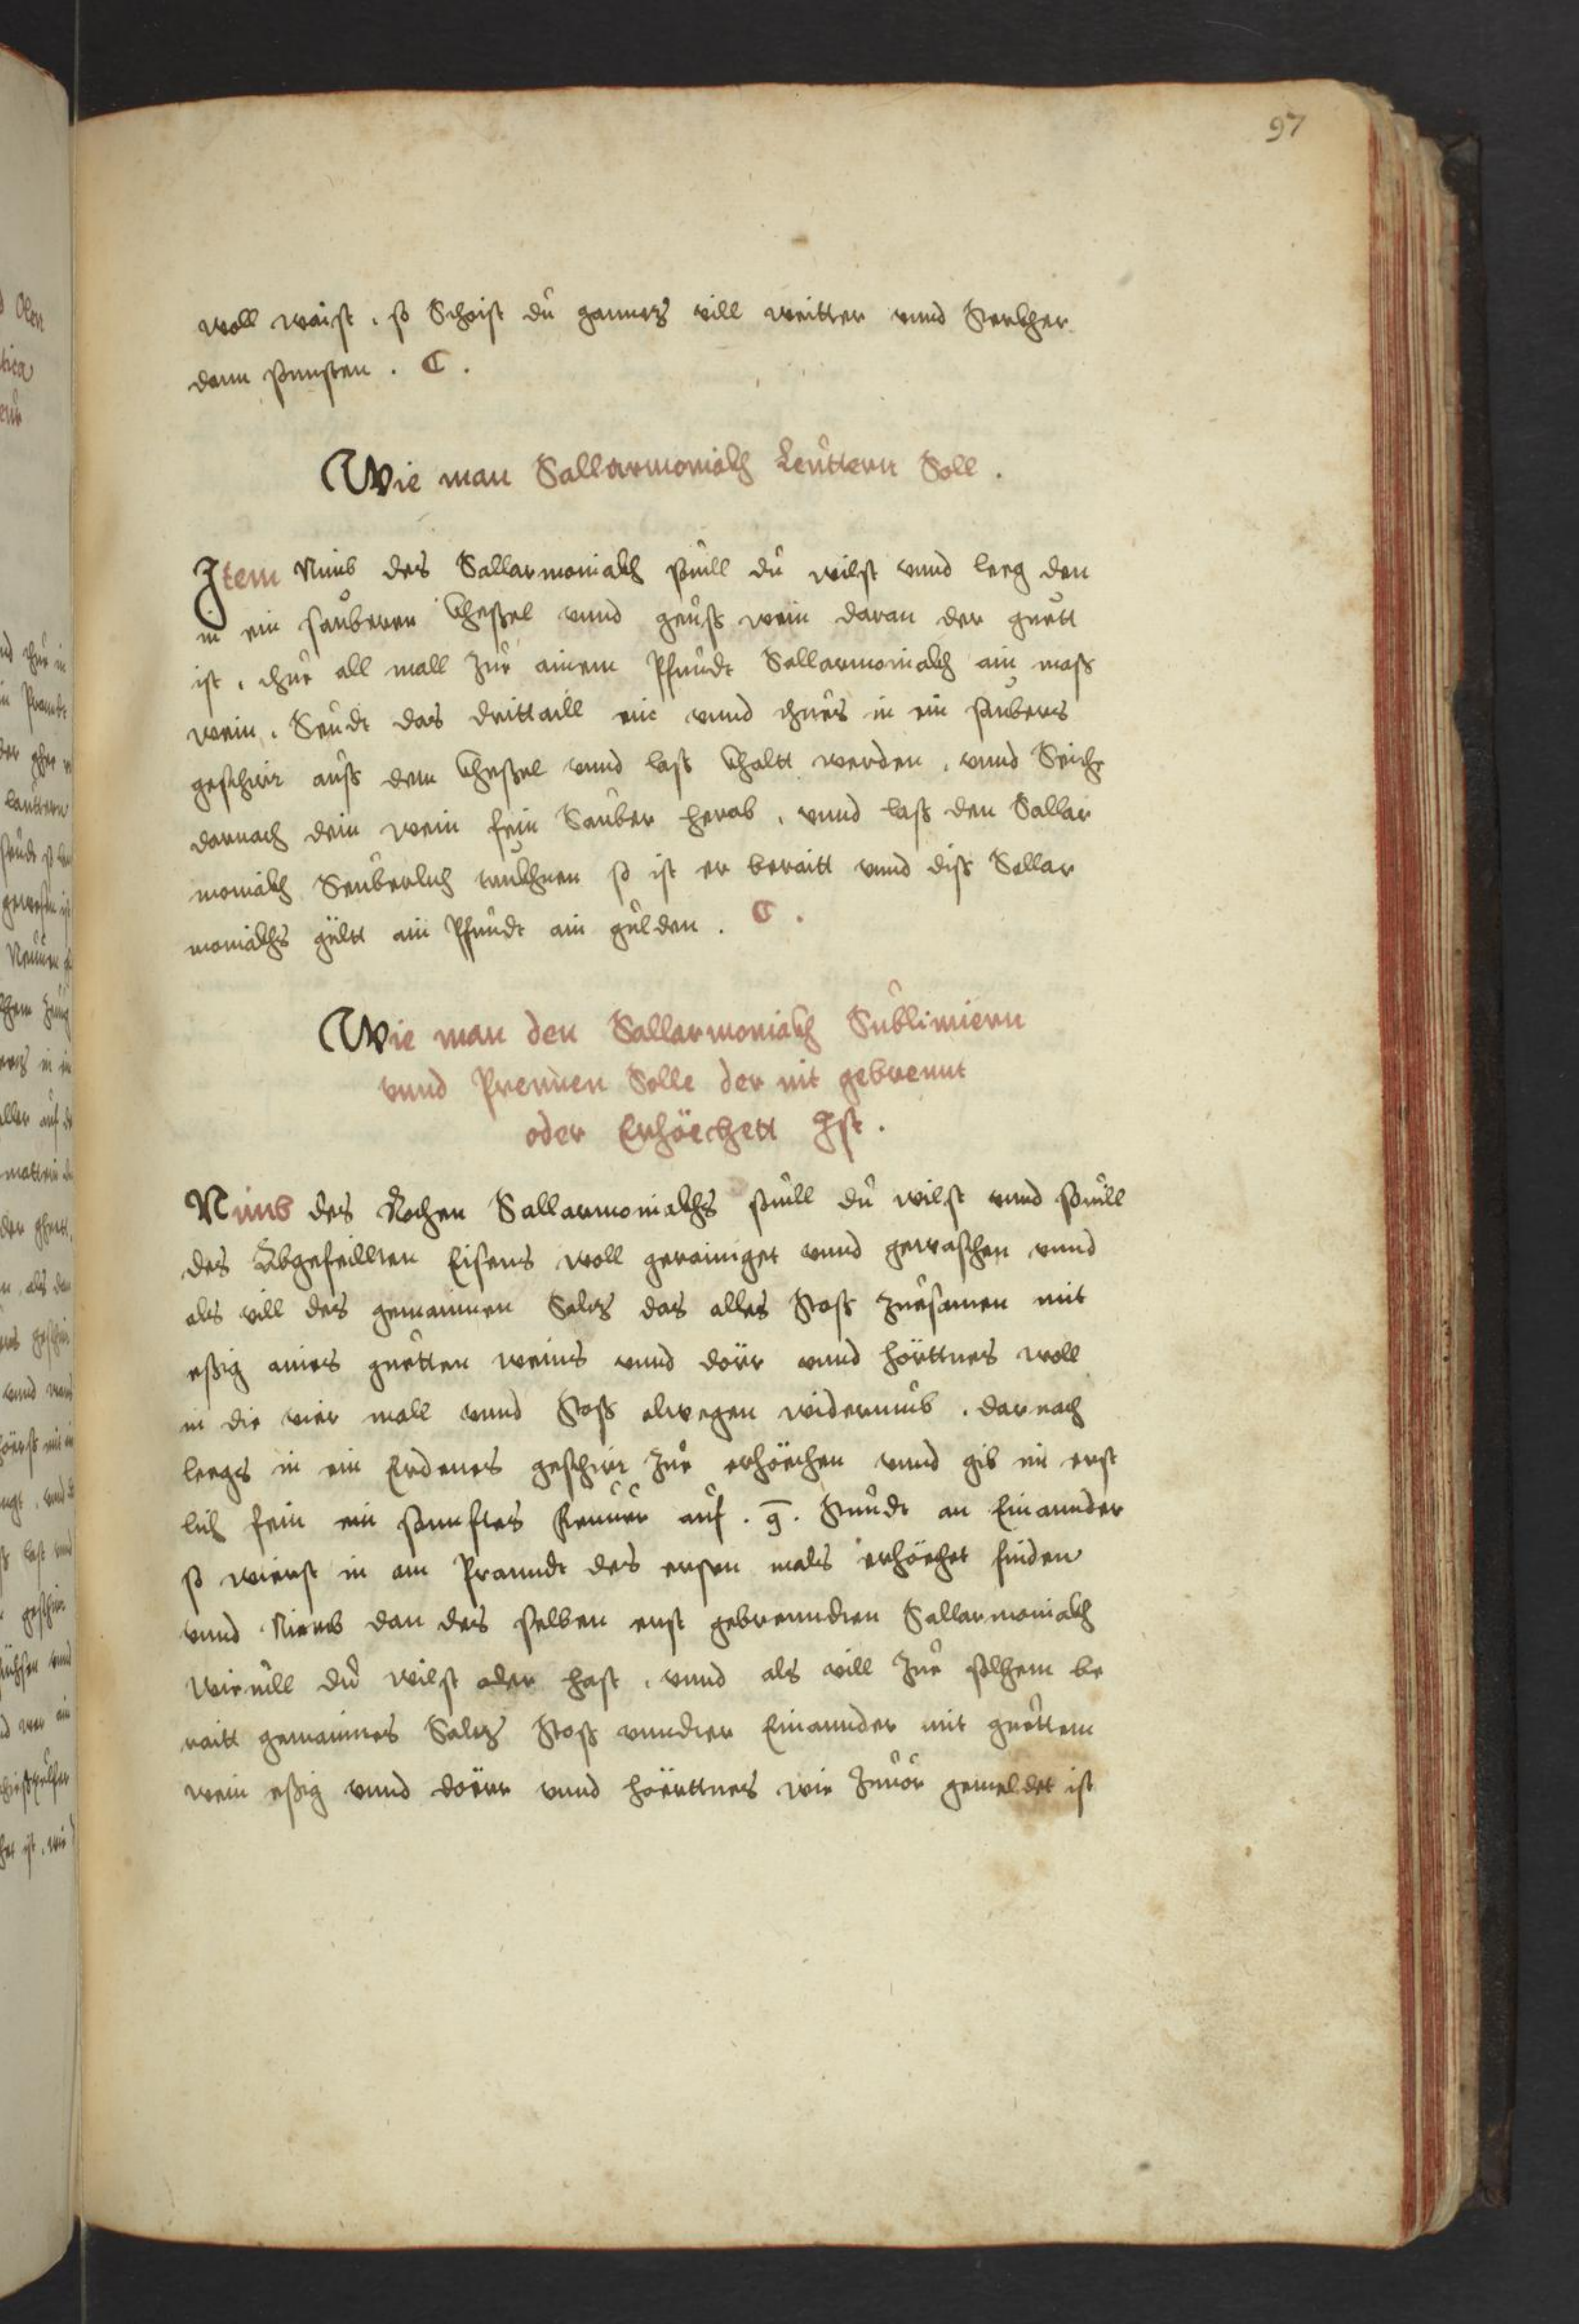 97
woll waist, so Scheist dü ganncz vill weitter vnnd Sterkher
dann sunsten. C.
Wie man Sallarmoniakh Leüttern Soll.
Item Nimb des Sallarmoniakh souill dü wilst vnnd leeg den
in ein saüberen kheßel vnnd geüß wein daran der guett
ist, thue all mall züe ainem Pfundt Sallarmoniakh ain mass
wein, Seüdt das drittaill ein vnnd thues in ein saübers
geschirr aüß dem kheßel vnnd last khaltt werden, vnnd Seiche
darnach dein wein fein Saüber herab, vnnd laß den Sallar
moniakh Seüberlich trükhnen so ist er beraitt vnnd diss Sallar
moniakhs gültt ain Pfundt ain gülden. C.
Wie man den Sallarmoniakh Süblimiern
vnnd Prennen Solle der nit gebrennt
oder Erhöechett Ist.
Nimb des Rochen Sallarmoniakhs souill dü wilst vnnd souill
des Abgefeillten Eisens woll gerainiget vnnd gewaschen vnnd
als vill des gemainnen Salcz das alles Stoß züesamen mit
eßig aines guetten weins vnnd dörr vnnd hörttnes woll
in die vier mall vnnd Stoß alwegen widerumb. darnach
leegs in ein Erdenes geschirr züe erhöechen vnnd gib im erst
lich fein ein sannftes Feüür aüf. 9. Stundt an Einannder
so wierst in am Pranndt des ersten mals erhöechet finden
vnnd Niemb dan des selben erst gebrenndten Sallarmoniakh
wieuill dü wilst oder hast, vnnd als vill züe solhem be
raitt gemainnes Salcz Stoß vnndter Einannder mit guettem
wein eßig vnnd döerr vnnd höerttnes wie züuor gemeldet ist